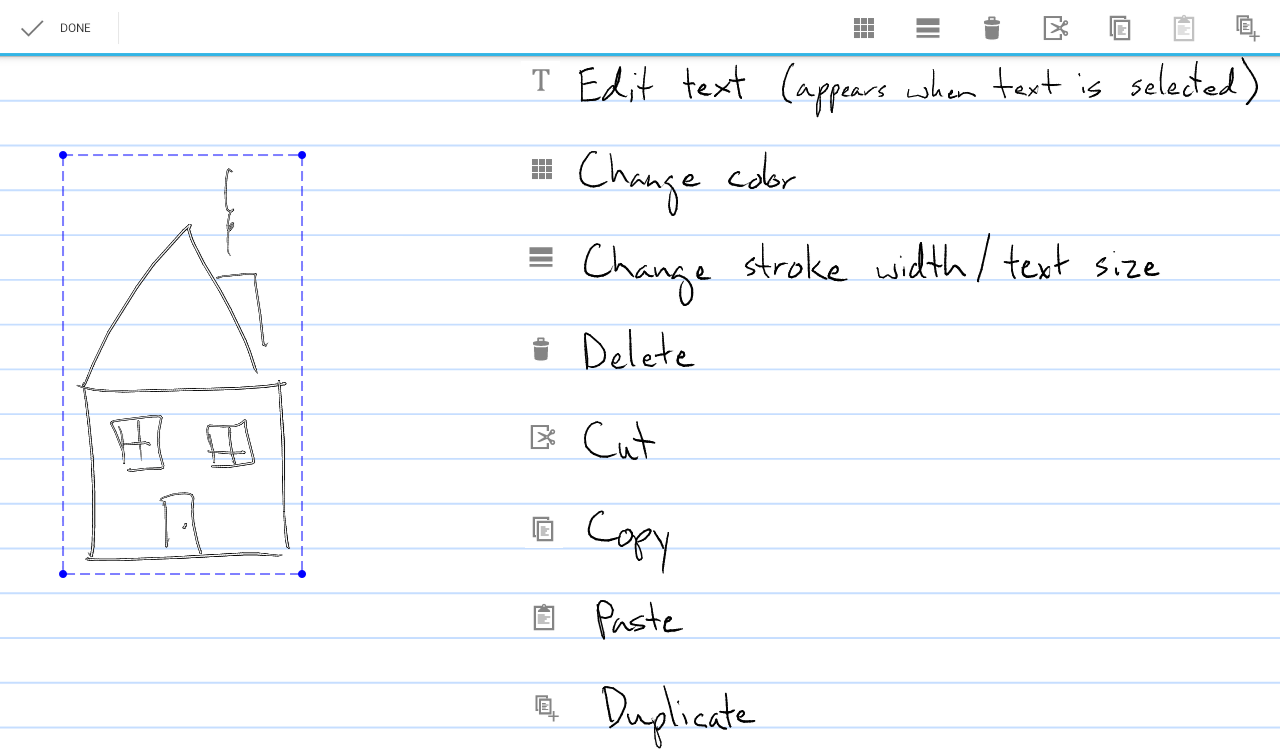 DONE
T Edit text (appears when text is selected)
Change color
Change stroke width/text size
Delete
Cut
Copy
Paste
Duplicate